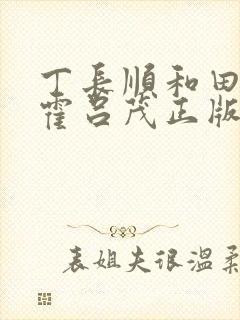 丁長順和田
霍呂茂正版
表姐夫很溫柔